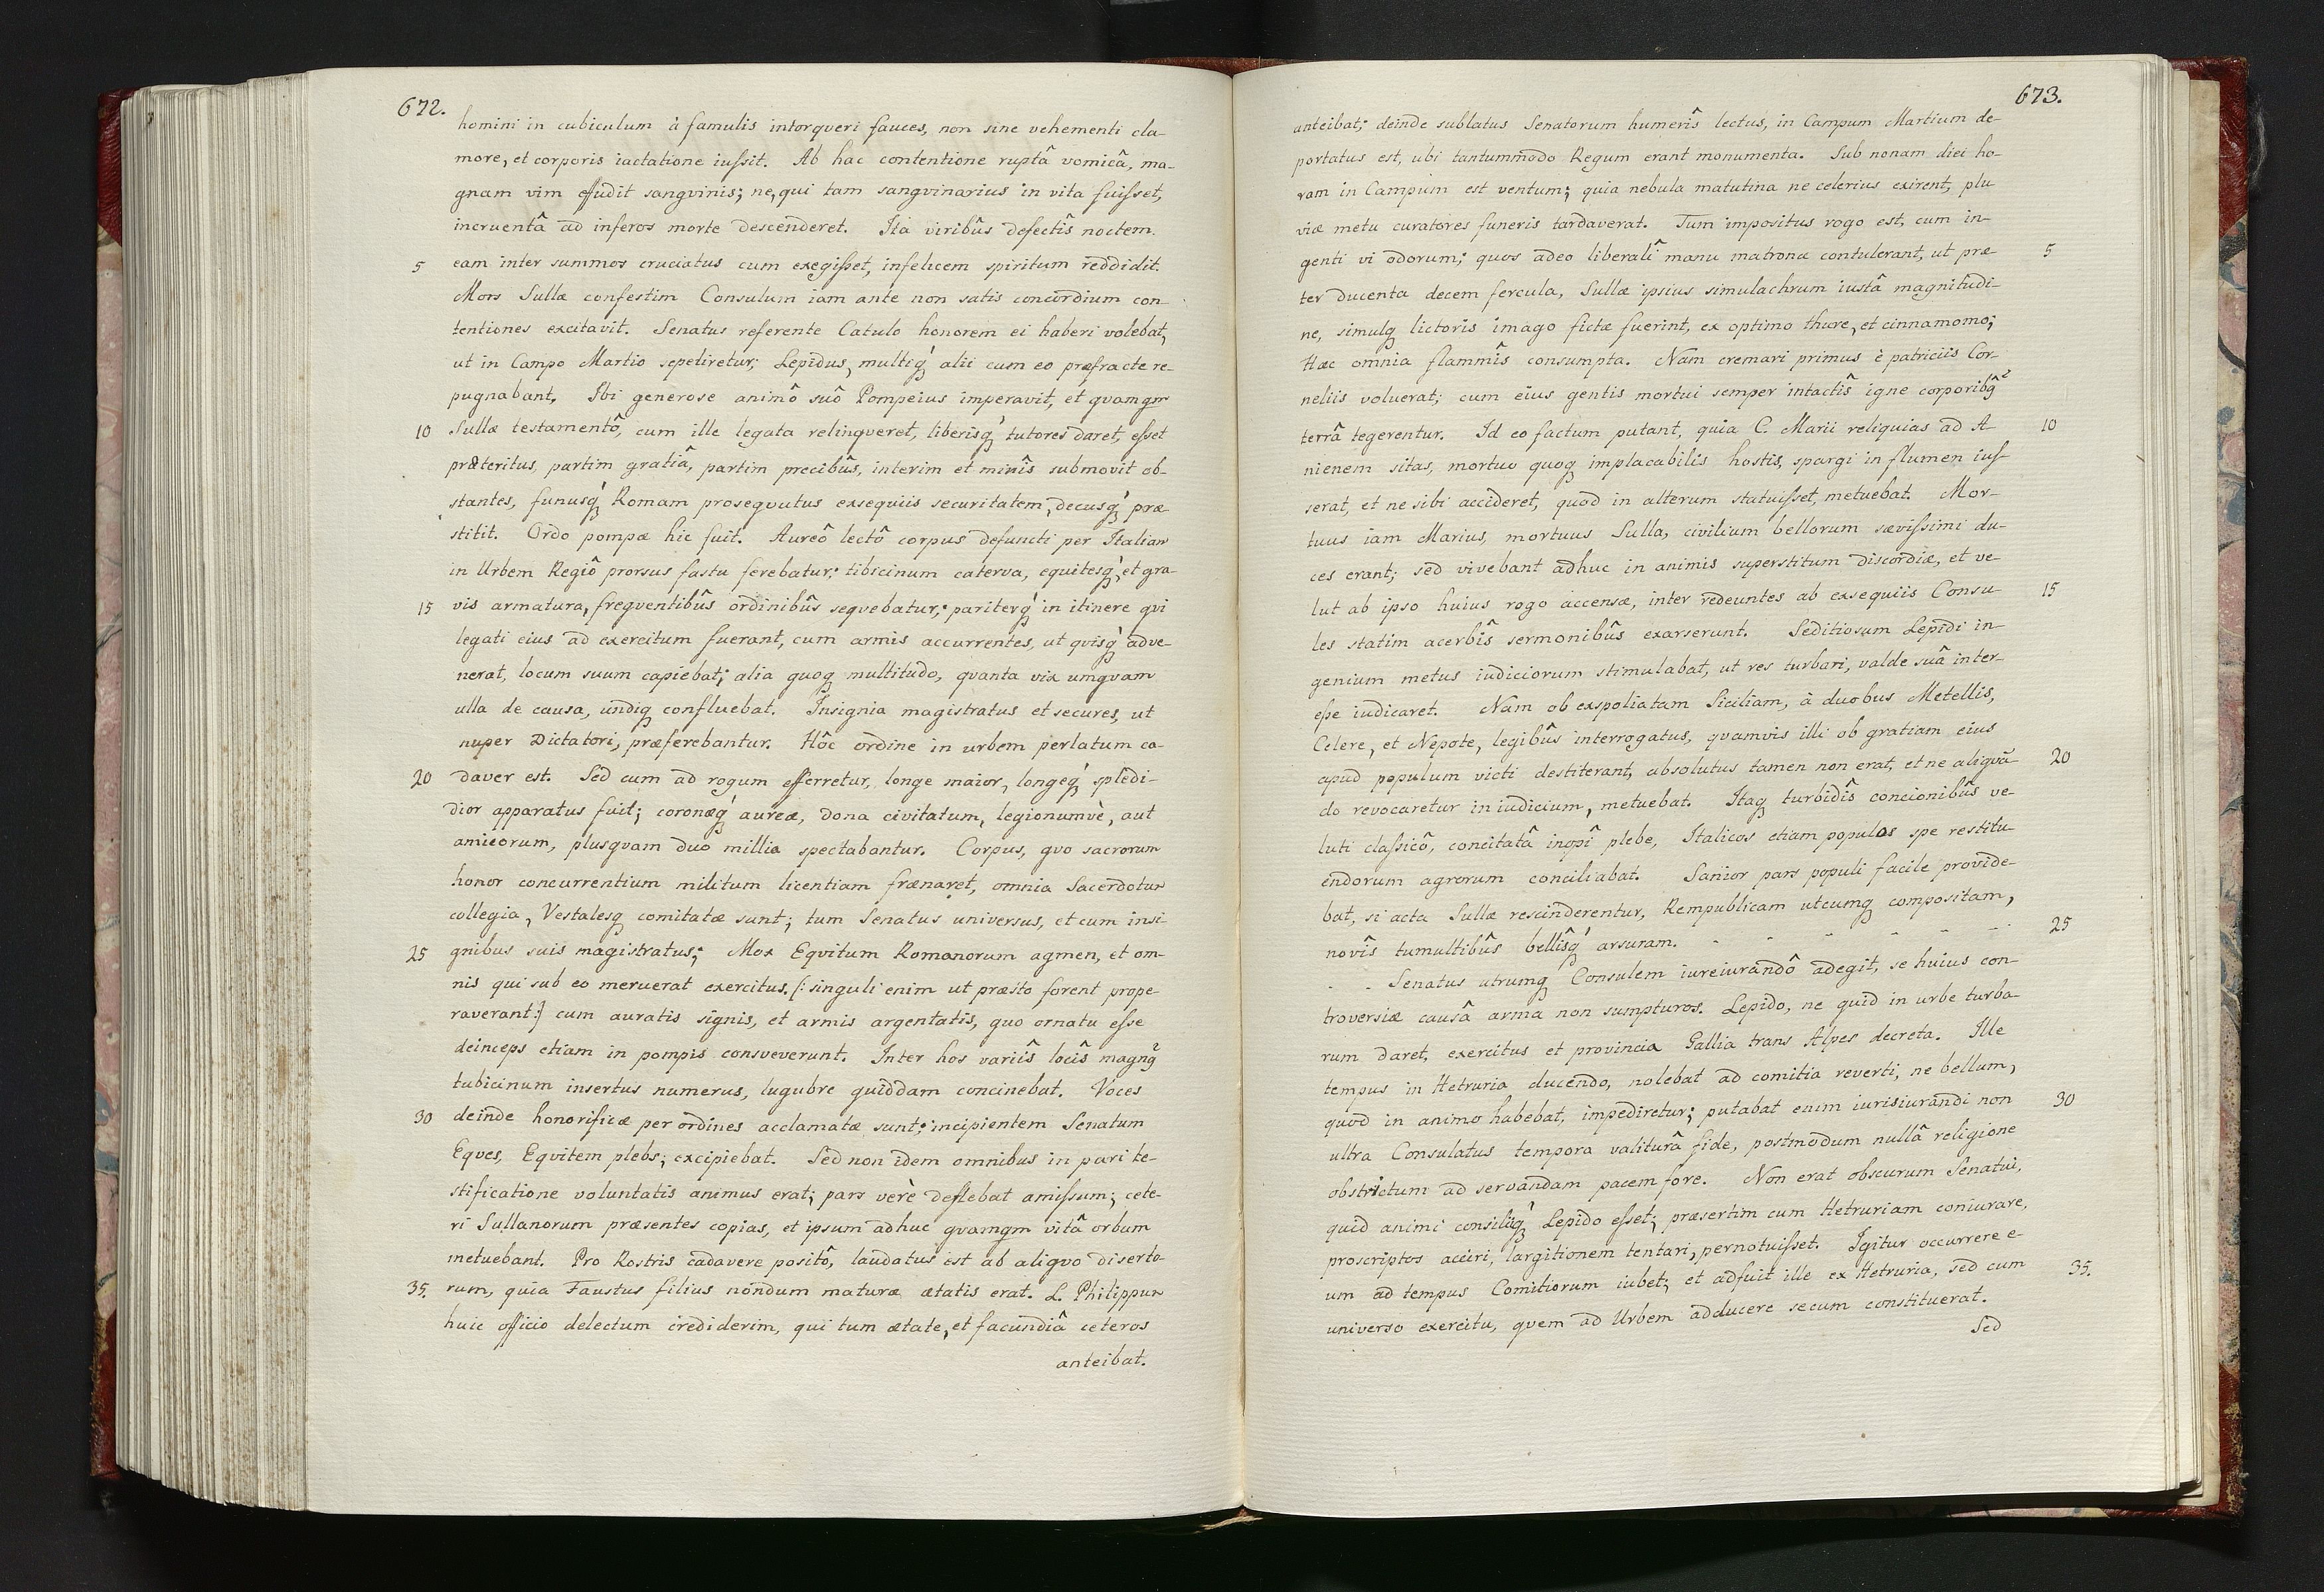 672.
homini in cubiculum à famulis intorqveri fauces, non sine vehementi cla-
more, et corporis iactatione iuſsit. Ab hac contentione ruptâ vomicâ, ma-
gnam vim effudit sangvinis; ne, qui tam sangvinarius in vita fuiſset,
incruentâ ad inferos morte descenderet. Ita viribûs defectîs noctem
5 eam inter summos cruciatus cum exegiſset, infelicem spiritum reddidit.
Mors Sullæ confestim Consulum iam ante non satis concordium con-
tentiones excitavit. Senatus referente Catulo honorem ei haberi volebat,
ut in Campo Martio sepeliretur; Lepidus, multiq́ alii cum eo præfracte re-
pugnabant. Ibi generose animô suô Pompeius imperavit, et qvamqm
10 Sullæ testamentô, cum ille legata relinqveret, liberisq́ tutores daret, eſset
præteritus, partim gratiâ, partim precibûs, interim et minîs submovit ob-
stantes, funusq́ Romam proseqvutus exseqviis securitatem, decusq́ præ
stitit. Ordo pompæ hic fuit. Aureô lectô corpus defuncti per Italiam
in Urbem Regiô prorsus fastu ferebatur; tibicinum caterva, eqvitesq́, et gra-
15 vis armatura, freqventibûs ordinibûs seqvebatur; pariterq́ in itinere qvi
legati eius ad exercitum fuerant, cum armis accurrentes, ut qvisq́ adve-
nerat, locum suum capiebat; alia quoq multitudo, qvanta vix umqvam
ulla de causa, undiq confluebat. Insignia magistratus et secures, ut
nuper Dictatori, præferebantur. Hôc ordine in urbem perlatum ca-
20 daver est. Sed cum ad rogum efferretur, longe maior, longeq́ splēdi-
dior apparatus fuit; coronæq́ aureæ, dona civitatum, legionumvè, aut
amicorum, plusqvam duo millia spectabantur. Corpus, qvo sacrorum
honor concurrentium militum licentiam frænaret, omnia Sacerdotum
collegia, Vestalesq comitatæ sunt; tum Senatus universus, et cum insi-
25 gnibus suis magistratus; Mox Eqvitum Romanorum agmen, et om-
nis qui sub eo meruerat exercitus. [: singuli enim ut præsto forent prope-
raverant:] cum auratis signis, et armis argentatis, quo ornatu eſse
deinceps etiam in pompis consveverunt. Inter hos variîs locîs magnq̃
tubicinum insertus numerus, lugubre quiddam concinebat. Voces
30 deinde honorificæ per ordines acclamatæ sunt; incipientem Senatum
Eqves, Eqvitem plebs; excipiebat. Sed non idem omnibus in pari te-
stificatione voluntatis animus erat; pars verè deflebat amiſsum; cete-
ri Sullanorum præsentes copias, et ipsum adhuc qvamqm vitâ orbum
metuebant. Pro Rostris cadavere positô, laudatus est ab aliqvo diserto-
35. rum, quia Faustus filius nondum maturæ ætatis erat. L. Philippum
huic officio delectum crediderim, qui tum ætate, et facundiâ ceteros
anteibat.
673.
anteibat; deinde sublatus Senatorum humerîs lectus, in Campum Martium de-
portatus est, ubi tantummodo Regum erant monumenta. Sub nonam diei ho-
ram in Campum est ventum; quia nebula matutina ne celerius exirent, plu
viæ metu curatores funeris tardaverat. Tum impositus rogo est, cum in-
genti vi odorum; quos adeo liberalî manu matronæ contulerant, ut præ- 5
ter ducenta decem fercula, Sullæ ipsius simulachrum iustâ magnitudi-
ne, simulq lictoris imago fictæ fuerint, ex optimo thure, et cinnamomo;
Hæc omnia flammîs consumpta. Nam cremari primus è patriciis Cor-
neliis voluerat; cum eius gentis mortui semper intactîs igne corporibq̃
terrâ tegerentur. Id eo factum putant, quia C. Marii reliquias ad A 10
nienem sitas, mortuo quoq implacabilis hostis, spargi in flumen iuſ-
serat, et ne sibi accideret, quod in alterum statuiſset, metuebat. Mor-
tuus iam Marius, mortuus Sulla, civilium bellorum sæviſsimi du-
ces erant; sed vivebant adhuc in animis superstitum discordiæ, et ve-
lut ab ipso huius rogo accensæ, inter redeuntes ab exsequiis Consu- 15
les statim acerbîs sermonibûs exarserunt. Seditiosum Lepidi in-
genium metus iudiciorum stimulabat, ut res turbari, valde suâ inter-
eſse iudicaret. Nam ob exspoliatam Siciliam, à duobus Metellis,
Celere, et Nepote, legibûs interrogatus, qvamvis illi ob gratiam eius
apud populum victi destiterant, absolutus tamen non erat, et ne aliqvā- 20
do revocaretur in iudicium, metuebat. Itaq turbidîs concionibûs ve-
luti claſsicô, concitatâ inopî plebe, Italicos etiam populos spe restitu-
endorum agrorum conciliabat. Sanior pars populi facile provide-
bat, si acta Sullæ rescinderentur, Rempublicam utcumq compositam,
novîs tumultibûs bellîsq́ arsuram. - - - - - - 25
- - Senatus utrumq Consulem iureiurandô adegit, se huius con-
troversiæ causâ arma non sumpturos. Lepido, ne quid in urbe turba-
rum daret, exercitus et provincia Gallia trans Alpes decreta. Ille
tempus in Hetruria ducendo, nolebat ad comitia reverti, ne bellum,
quod in animo habebat, impediretur; putabat enim iurisiurandi non 30
ultra Consulatus tempora valiturâ fide, postmodum nullâ religione
obstrictum ad servandam pacem fore. Non erat obscurum Senatui,
quid animi consiliiq́ Lepido eſset; præsertim cum Hetruriam coniurare,
proscriptos acciri, largitionem tentari, pernotuiſset. Igitur occurrere e-
um ad tempus Comitiorum iubet; et adfuit ille ex Hetruria, sed cum 35.
universo exercitu, qvem ad Urbem adducere secum constituerat.
Sed